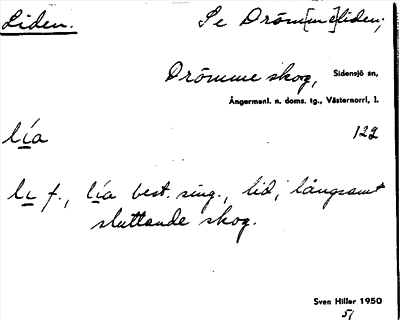 Liden. Se Dröm[me]liden;
Drömme skog, Sidensjö sn,
Ångermanl. n. doms. tg., Västernorrl, l.
lía 122
li f., lía best. sing., lid, långsamt
sluttande skog.
Sven Hiller 1950
51